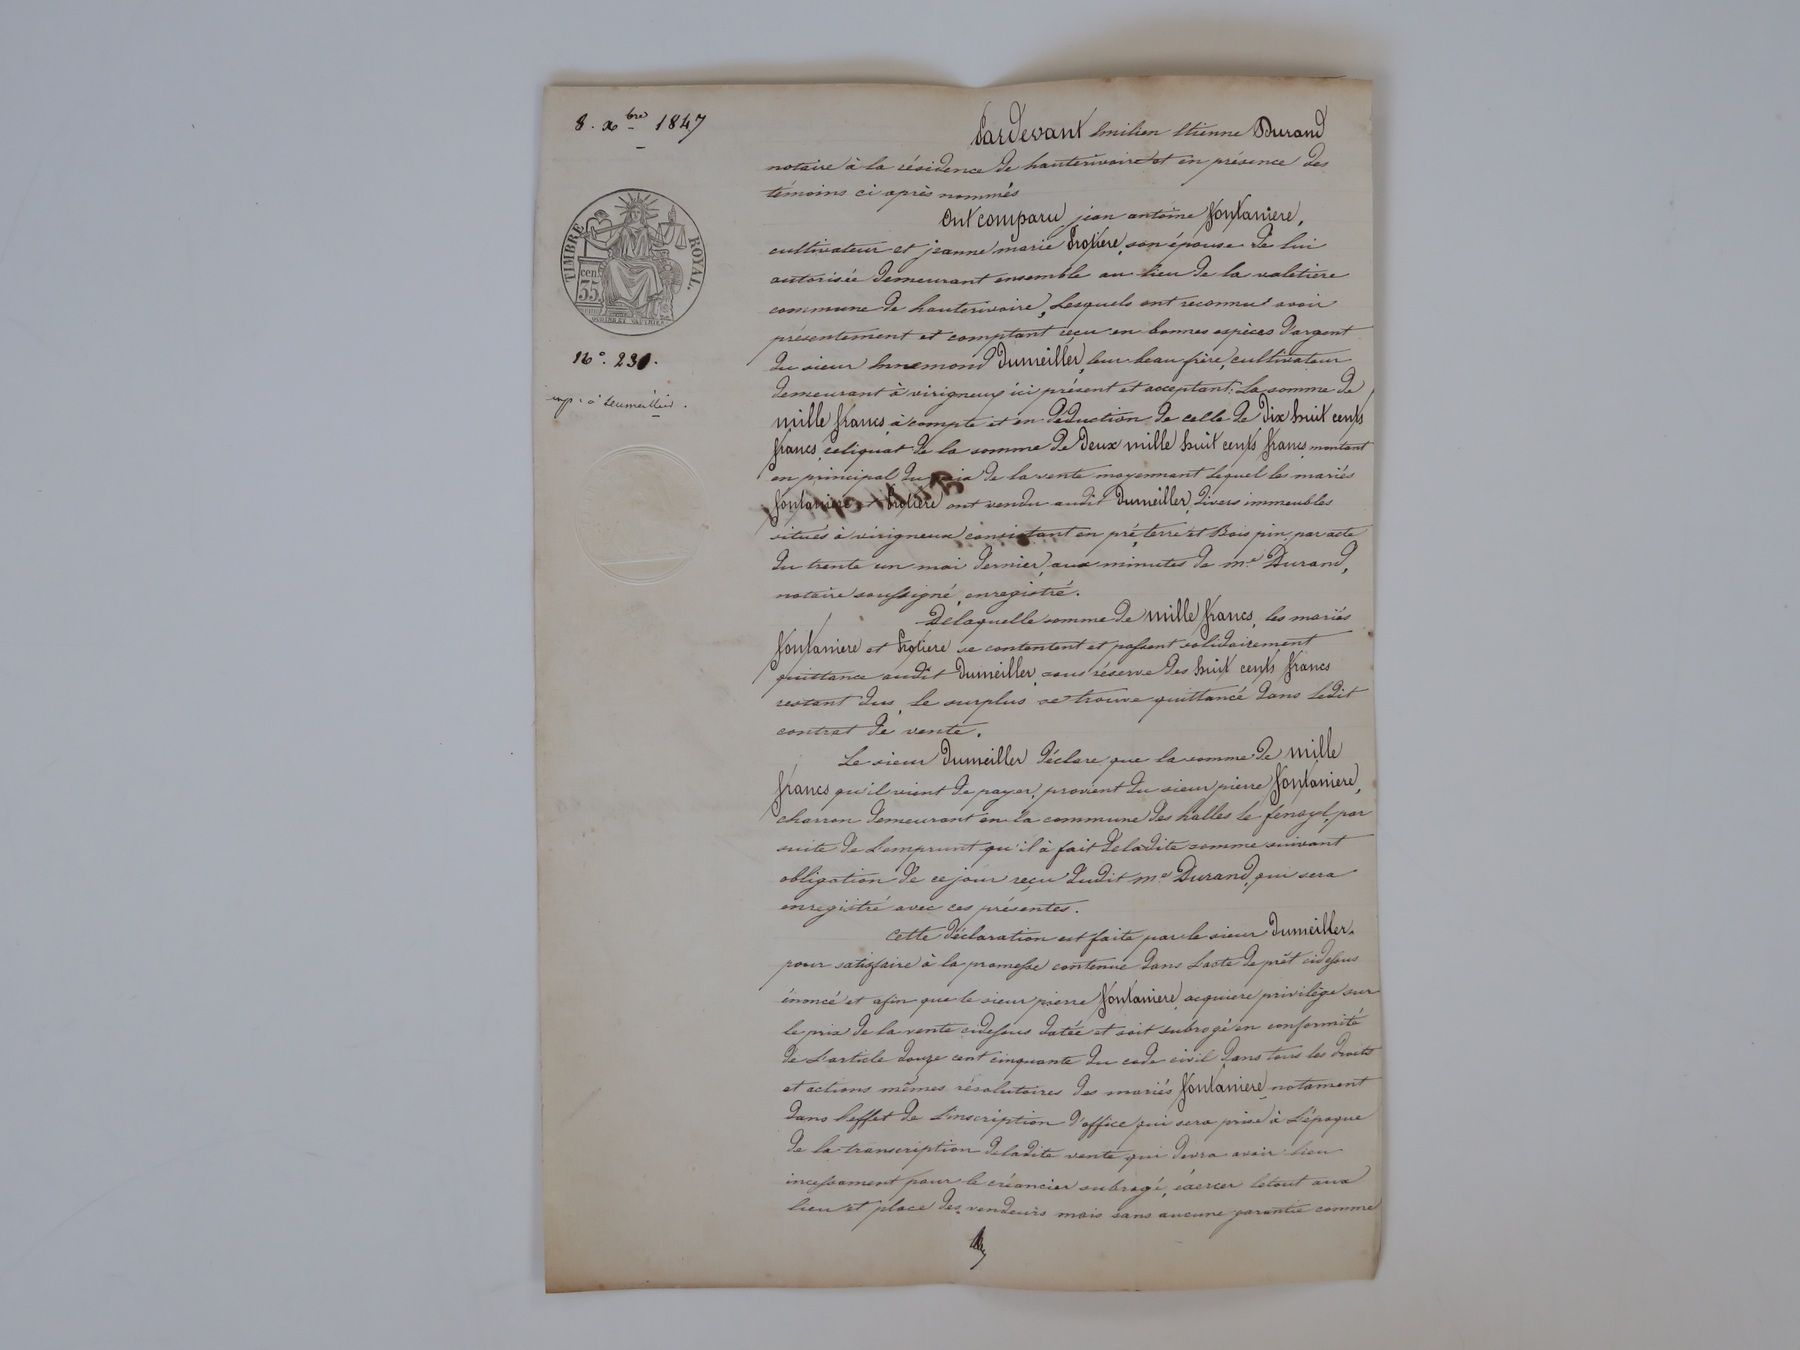 8. xbre 1847
TIMBRE ROYAL.
cen.
35.
N°. 230.
exp. à Dumeiller.
Pardevant Emilien Etienne Durand
notaire à la résidence de hauterivoire et en présence des
témoins ci après nommés
Ont comparu jean antoine fontaniere,
cultivateur et jeanne marie protiere, son épouse de lui
autorisée demeurant ensemble au lieu de la valetiere
commune de hauterivoire, Lesquels ont reconnu avoir
présentement et comptant reçu en bonnes espèces d'argent
du sieur Ennemond Dumeiller, leur beau frère, cultivateur
demeurant à virigneux ici présent et acceptant. La somme de
mille francs, à compte et en déduction de celle de Dix huit cents
francs, reliquat de la somme de Deux mille huit cents francs, montant
en principal du prix de la vente moyennant lequel les mariés
fontaniere et protiere ont vendu audit Dumeiller, divers immeubles
situés à virigneux consistant en pré, terre et Bois pin, par acte
du trente un mai dernier, aux minutes de me. Durand,
notaire soussigné, enregistré.
Delaquelle somme de mille francs, les mariés
fontaniere et protiere se contentent et passent solidairement
quittance audit Dumeiller, sous réserve des huit cents francs
restant dus, le surplus se trouve quittancé dans ledit
contrat de vente.
Le sieur Dumeiller déclare que la somme de mille
francs qu'il vient de payer, provient du sieur pierre fontaniere,
charron demeurant en la commune des halles le fenoyl, par
suite de L'emprunt qu'il à fait deladite somme suivant
obligation de ce jour reçu dudit me. Durand, qui sera
enregistré avec ces présentes.
Cette déclaration est faite par le sieur Dumeiller.
pour satisfaire à la promesse contenue dans L'acte de prêt cidessus
énoncé et afin que le sieur pierre fontaniere, acquiere privilège sur
le prix de la vente cidessus datée et soit subrogé en conformité
de L'article douze cent cinquante du code civil dans tous les droits
et actions mêmes résolutoires des mariés fontaniere, notament
dans l'effet de L'inscription d'office qui sera prise à L'époque
de la transcription deladite vente qui devra avoir lieu
incessament pour le créancier subrogé, éxercer letout aux
lieu et place des vendeurs mais sans aucune garantie comme